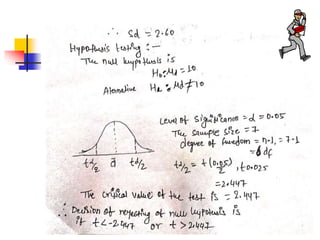 ∴ Sd = 2.60
Hypothesis testing :—
The null hypothesis is
H₀: μd = 10
Alternative Ha: μd ≠ 10
Level of significance = α = 0.05
The sample size = 7
degree of freedom = n-1, = 7-1
= 6 df
tα/2 = t (0.05)/2, t0.025
= 2.447
tα/2 0 tα/2
The critical value of the test is = 2.447
∴ Decision of rejecting of null hypothesis is
if t < -2.447 or t > 2.447